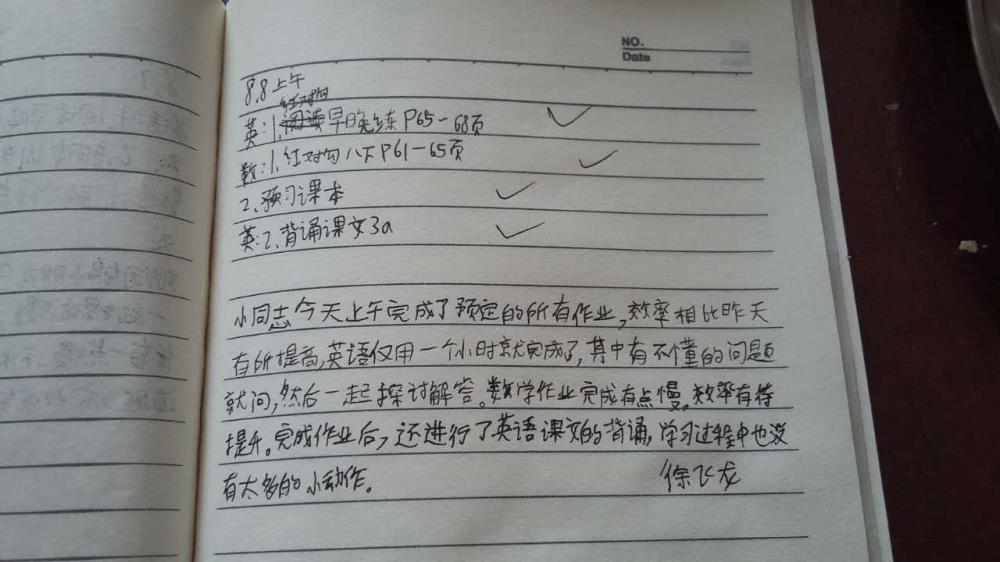 NO.
Date
8.8上午
红对勾
英:1、阅读早晚练P65-68页
数:1、红对勾八下P61-65页
2、预习课本
英:2、背诵课文3a
小同志今天上午完成了预定的所有作业,效率相比昨天
有所提高,英语仅用一个小时就完成了,其中有不懂的问题
就问,然后一起探讨解答。数学作业完成有点慢。效率有待
提升。完成作业后,还进行了英语课文的背诵,学习过程中也没
有太多的小动作。
徐飞龙